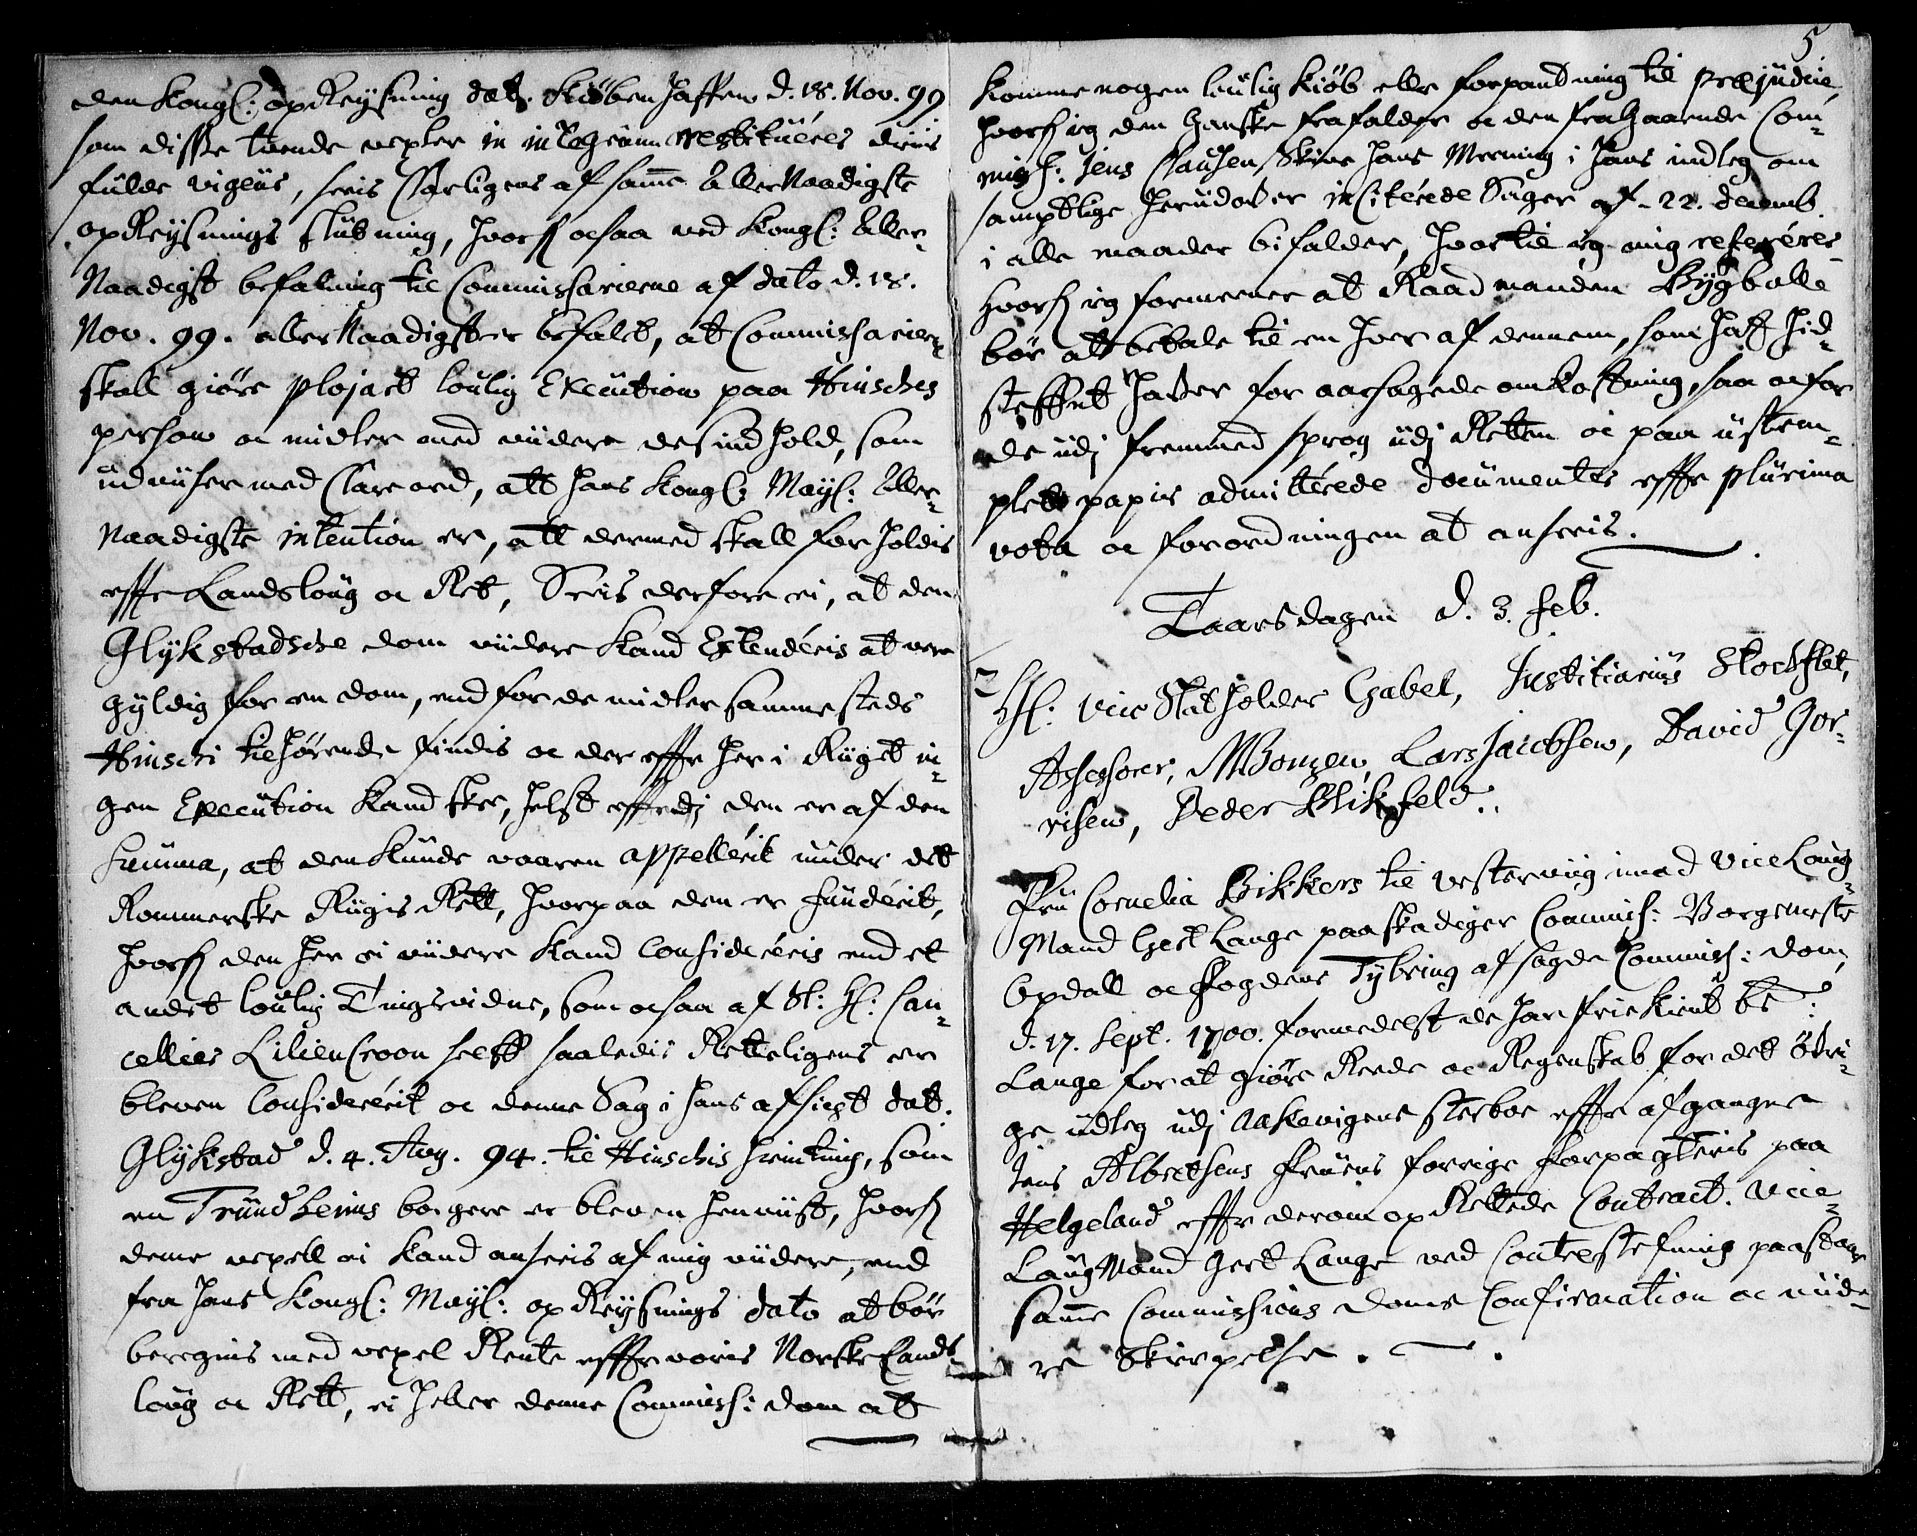 den Kongl: opReysning dat. Kiøbenhaffen d. 18. Nov. 99
som disse tvende vexler in integrum restituéres deris
fulde vigeur, seeis Clarligens af samme AllerNaadigste
opReysnings slutning, hvorfr ocsaa ved Kongl: Aller-
Naadigst befalning til Commissarierne af dato d. 18.
Nov. 99. allerNaadigst er befalet, at Commissarier-
skall giøre  loulig Execution paa Hinsches
person oc midler med viidere desindhold, som
udviiser med Clare ord, att hans Kongl: Mayt: Aller-
Naadigste intention er, att dermed skall forholdis
effter Landsloug oc Ret, Seeis derfore ei, at den
Glykstadsche dom viidere kand Extendéris at vere
gyldig for en dom, end for de midler sammesteds
Hinsch tilhørende findis oc der effter her i Riiget in-
gen Execution kand skee, helst efftedj den er af den
Summa, at den kunde vaaren appellérit under det
Rommerske Riigis Rett, hvorpaa den er fundérit,
hvorfr den her ei viidere kand Considereris end et
andet louligt Tingsvidne, som ocsaa af Sl: H: Can-
cellier LilienCroon self saaledis Retteligens er
bleven Considerérit oc denne Sag i hans afsigt dat.
Glykstad d. 4. Aug. 94. til Hinschis hiemting, som
en TrundHeims borgere er bleven henviist, hvorfr
denne vexell ei kand anseeis af mig viidere, end
fra hans Kongl: Mayt: opReysnings dato at bør
beregnis med vexel Rente effter voris Norske Lands
loug oc Rett, ei heller denne Commiss: dom at
5
komme nogen loulig kiøb eller forpandtning til præjudice,
hvorfr ieg den ganske frafalder oc den fragaaende Com-
miss: Jens Clausen Skive hans Meening i hans indleg om
samptlige herudover inciterede Sager af 22. decemb.
i alle maader bifalder, hvortil ieg mig referérer
hvorfr ieg formeener at Raadmanden Bygballe
bør att betale til en hver af dennem, som hand hid-
steffnet haver for aarsagede omkostning, saa oc for
de udj fremmed sprog udj Retten oc paa ustem-
plett papir admitterede documenter effter plurima
vota oc forordningen at anseeis.
Taarsdagen d. 3. feb.
2
H: Vice Statholder Gabel, Justitiarius Stockflet,
Assessorer, MBonzen, Lars Jacobsen, David Gør-
risen, Peder Blikfeld.
Fru Cornelia Bikkers til vesterviig imod ViceLoug-
Mand Gert Lange paaskadiger Commiss: Borgemester
Opdall oc Fogdens Tybring afsagde Commiss: dom,
d. 17. Sept. 1700. formedelst de har friekient bte:
Lange for at giøre Reede oc Regenskab for det øvri-
ge udleg udj Aakevigens sterboe effter afgangne
Jens Albretsens Fruens forrige forpagteris paa
Helgeland effter derom opRettede Contract. Vice
LaugMand Gert Lange ved Contrastefning paastaar
samme Commissions doms Confirmation oc viide-
re Skierpelse.